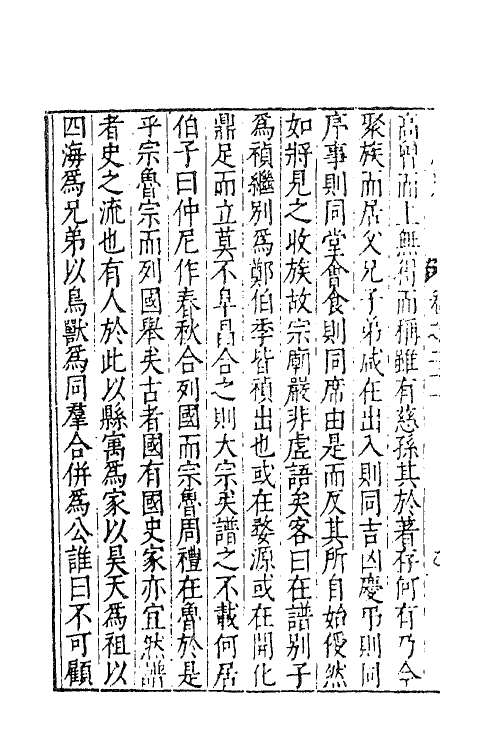 高曾而上無得而稱雖有慈孫其於著存何有乃今
聚族而居父兄子弟咸在出入則同吉凶慶弔則同
序事則同堂會食則同席由是而反其所自始僾然
如將見之收族故宗廟嚴非虛語矣客曰在譜別子
爲禎繼別爲鄭伯季皆禎出也或在婺源或在開化
鼎足而立莫不阜昌合之則大宗矣譜之不載何居
伯子曰仲尼作春秋合列國而宗魯周禮在魯於是
乎宗魯宗而列國舉矣古者國有國史家亦宜然譜
者史之流也有人於此以縣寓爲家以昊天爲祖以
四海爲兄弟以鳥獸爲同羣合併爲公誰曰不可顧